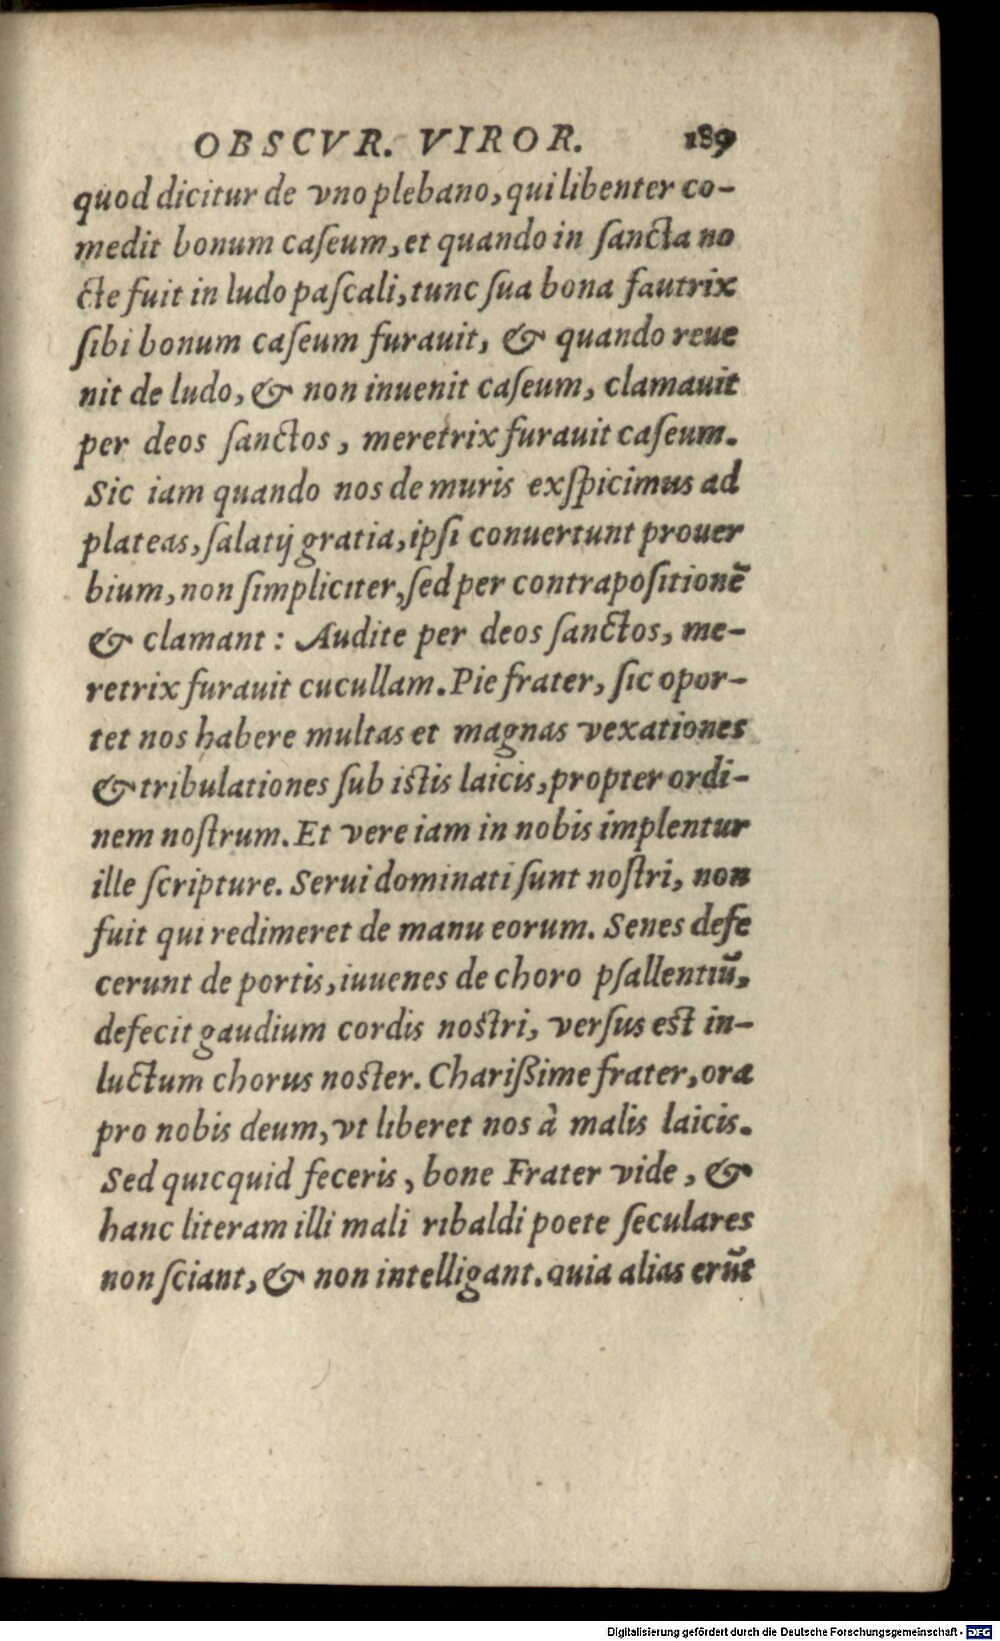 OBSCVR. VIROR. 189
quod dicitur de vno plebano, qui libenter co-
medit bonum caſeum, et quando in ſancta no
cte fuit in ludo paſcali, tunc ſua bona fautrix
ſibi bonum caſeum furauit, & quando reue
nit de ludo, & non inuenit caſeum, clamauit
per deos ſanctos, meretrix furauit caſeum.
Sic iam quando nos de muris exſpicimus ad
plateas, ſalatij gratia, ipſi conuertunt prouer
bium, non ſimpliciter, ſed per contrapoſitionē
& clamant: Audite per deos ſanctos, me-
retrix furauit cucullam. Pie frater, ſic opor-
tet nos habere multas et magnas vexationes
& tribulationes ſub iſtis laicis, propter ordi-
nem noſtrum. Et vere iam in nobis implentur
ille ſcripture. Serui dominati ſunt noſtri, non
fuit qui redimeret de manu eorum. Senes defe
cerunt de portis, iuuenes de choro pſallentiū,
defecit gaudium cordis noſtri, verſus eſt in-
luctum chorus noſter. Charißime frater, ora
pro nobis deum, vt liberet nos à malis laicis.
Sed quicquid feceris, bone Frater vide, &
hanc literam illi mali ribaldi poete ſeculares
non ſciant, & non intelligant. quia alias erūt
Digitalisierung gefördert durch die Deutsche Forschungsgemeinschaft - DFG